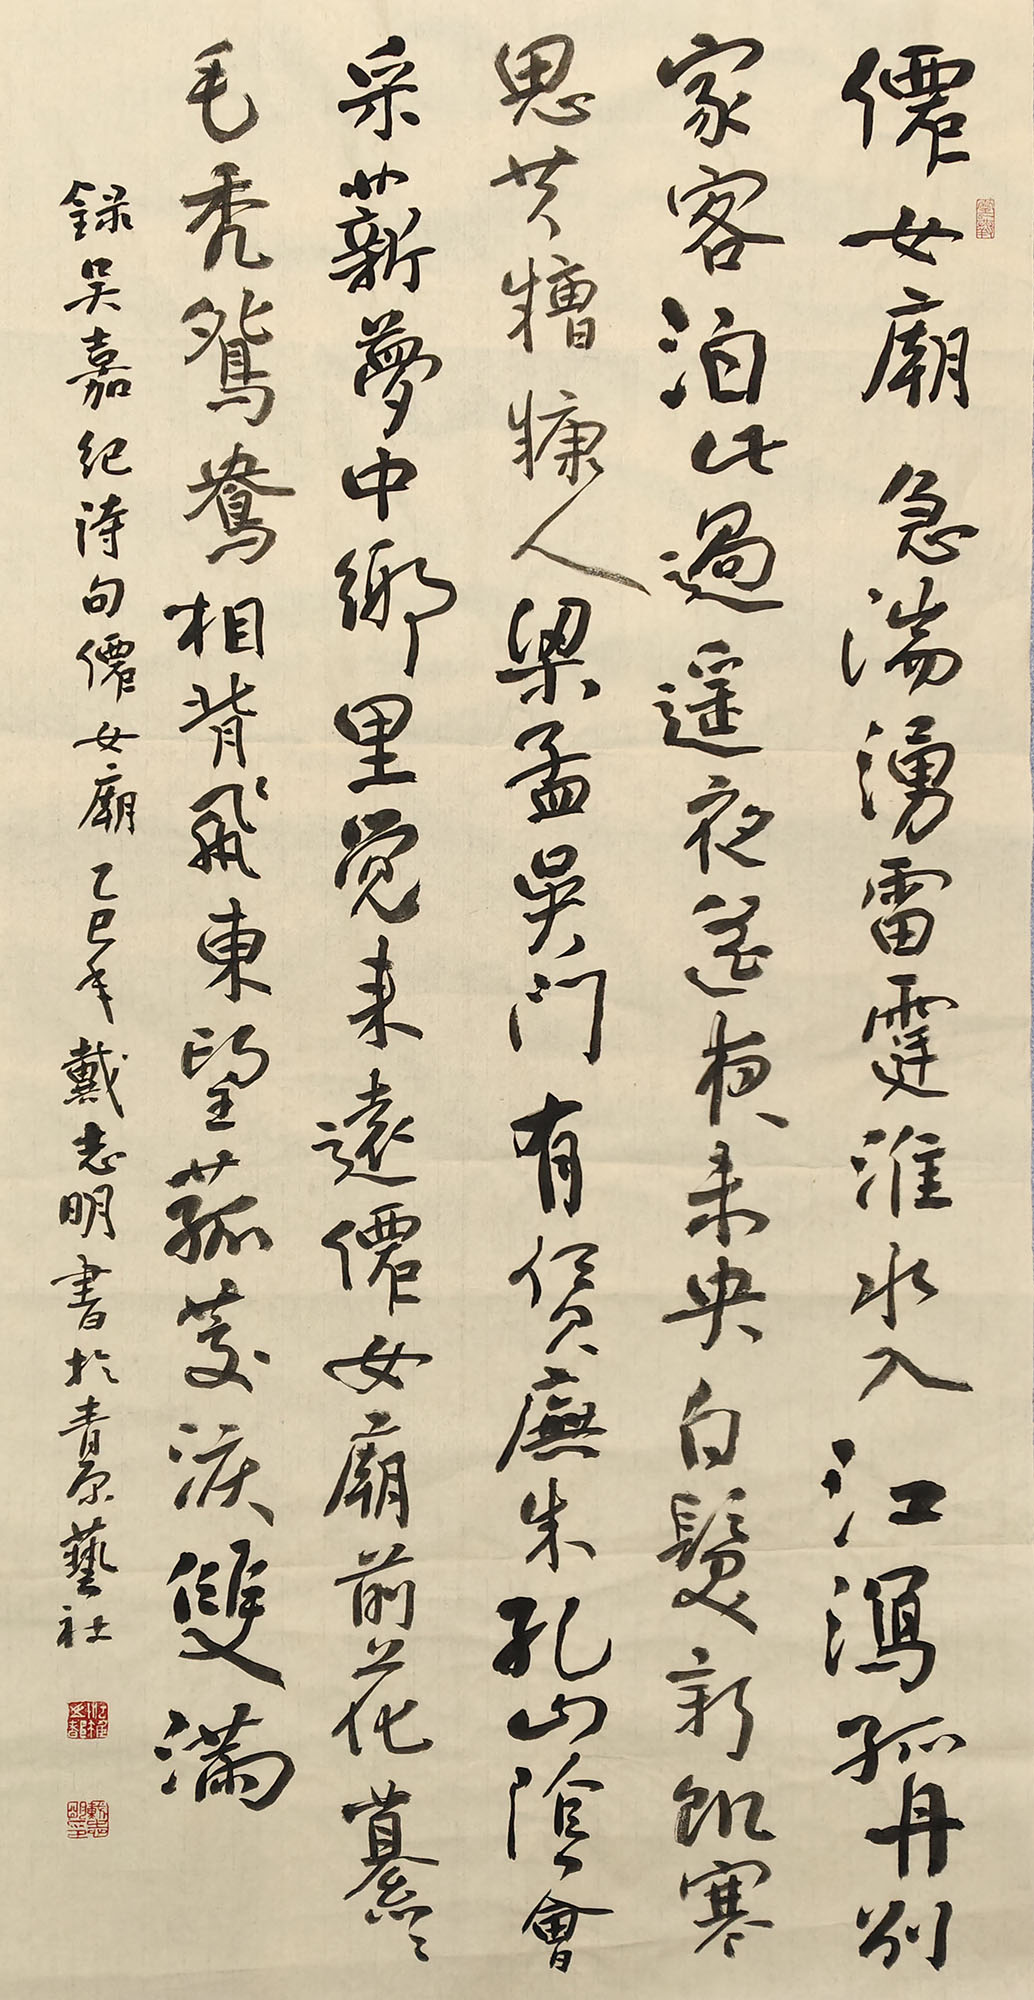 僊女廟 急湍湧雷霆淮水入江瀉孤舟別
家客泊此過遥夜遥夜未央白髮新飢寒
思共糟糠人梁孟吳門有賃廡朱孔山陰會
采薪夢中鄉里覺来遠僊女廟前花纂纂
毛秃鴛鴦相背飛東望菰茭淚雙滿
録吴嘉纪诗句僊女廟乙巳年戴志明書於青原藝社